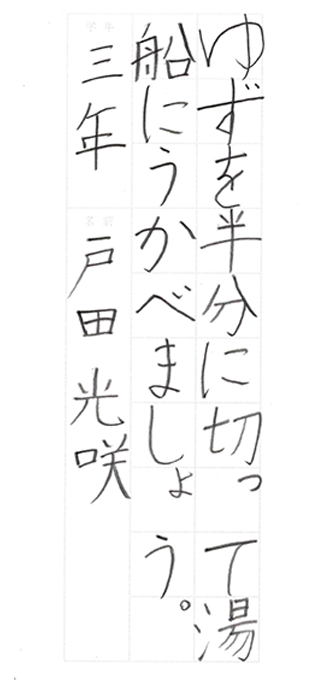 ゆずを半分に切って湯
船にうかべましょう。
学年
三年
名前
戸田光咲